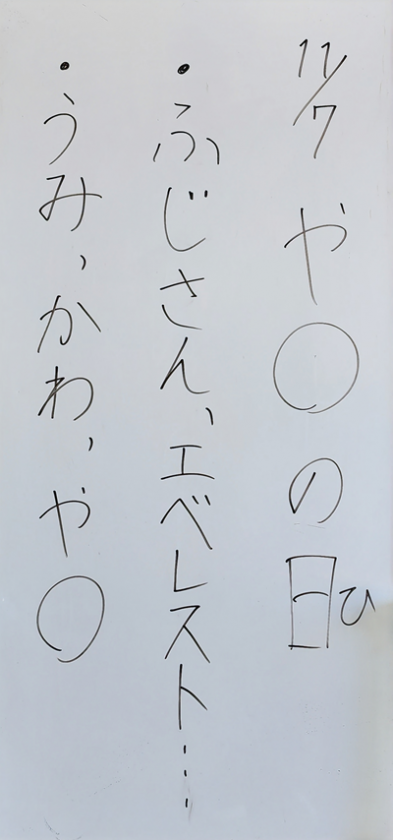 11/7 や○の日ひ
・ふじさん、エベレスト…
・うみ、かわ、や○